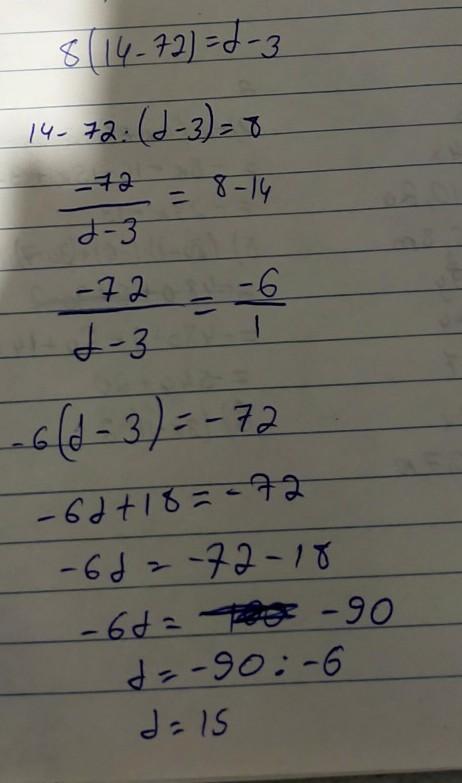 8(14-72)=d-3
14-72:(d-3)=8
-72/d-3 = 8-14
-72/d-3 = -6/1
-6(d-3)=-72
-6d+18=-72
-6d=-72-18
-6d= -90
d=-90:-6
d=15